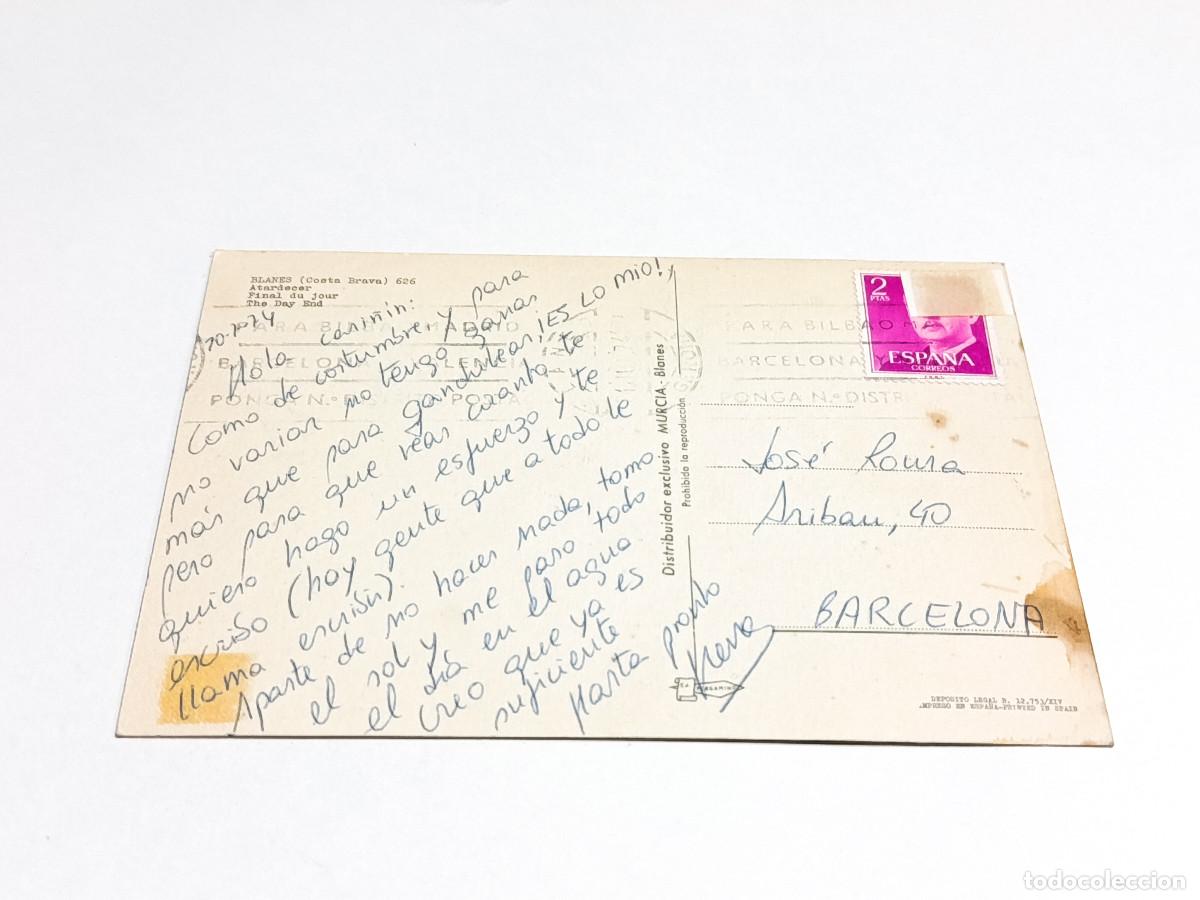 BLANES (Costa Brava) 626
Atardecer
Final du jour
The Day End
20.7.74
Hola cariñín:
Como de costumbre, y para
no variar no tengo ganas
más que para gandulear, ¡ES LO MIO!,
pero para que veas cuanto te
quiero hago un esfuerzo y te
escriso (hay gente que a todo le
llama escrisin).
Aparte de no hacer nada, tomo
el sol y me paso todo
el día en el agua
creo que ya es
suficiente
Hasta pronto
PARA BILBAO MADRID
BARCELONA
PONGA N.º DISTR
POSTAL
PARA BILBAO MA
BARCELONA Y
PONGA N.º DISTR
Distribuidor exclusivo MURCIA - Blanes
Prohibida la reproducción
2
PTAS
ESPAÑA
CORREOS
José Roura
Aribau, 40
BARCELONA
PERGAMINO
DEPOSITO LEGAL B. 12.753/XIV
IMPRESO EN ESPAÑA-PRINTED IN SPAIN
todocoleccion